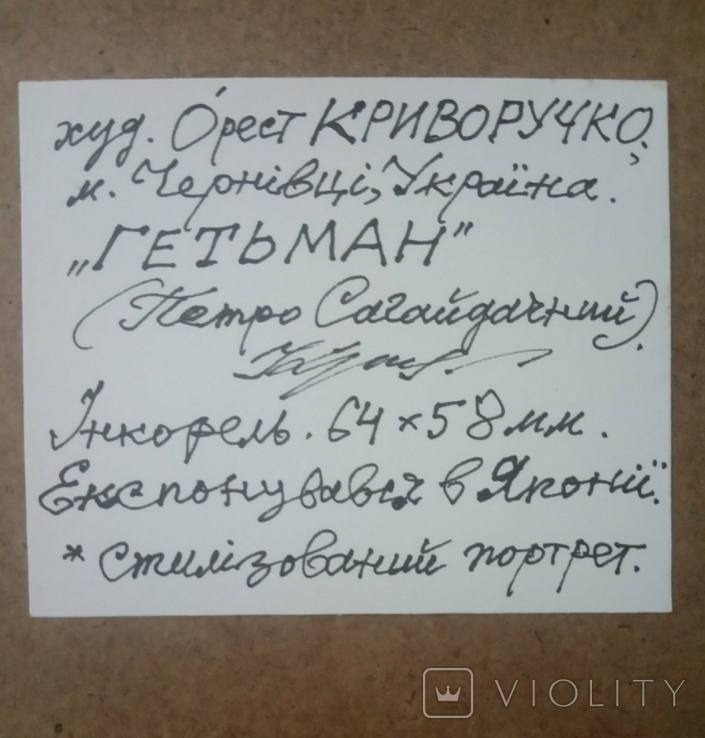 худ. О́рест КРИВОРУЧКО,
м. Чернівці, Україна.
„ГЕТЬМАН"
(Петро Сагайдачний).
Інкорель. 64×58мм.
Експонувався в Японії.
* стилізований портрет.
VIOLITY